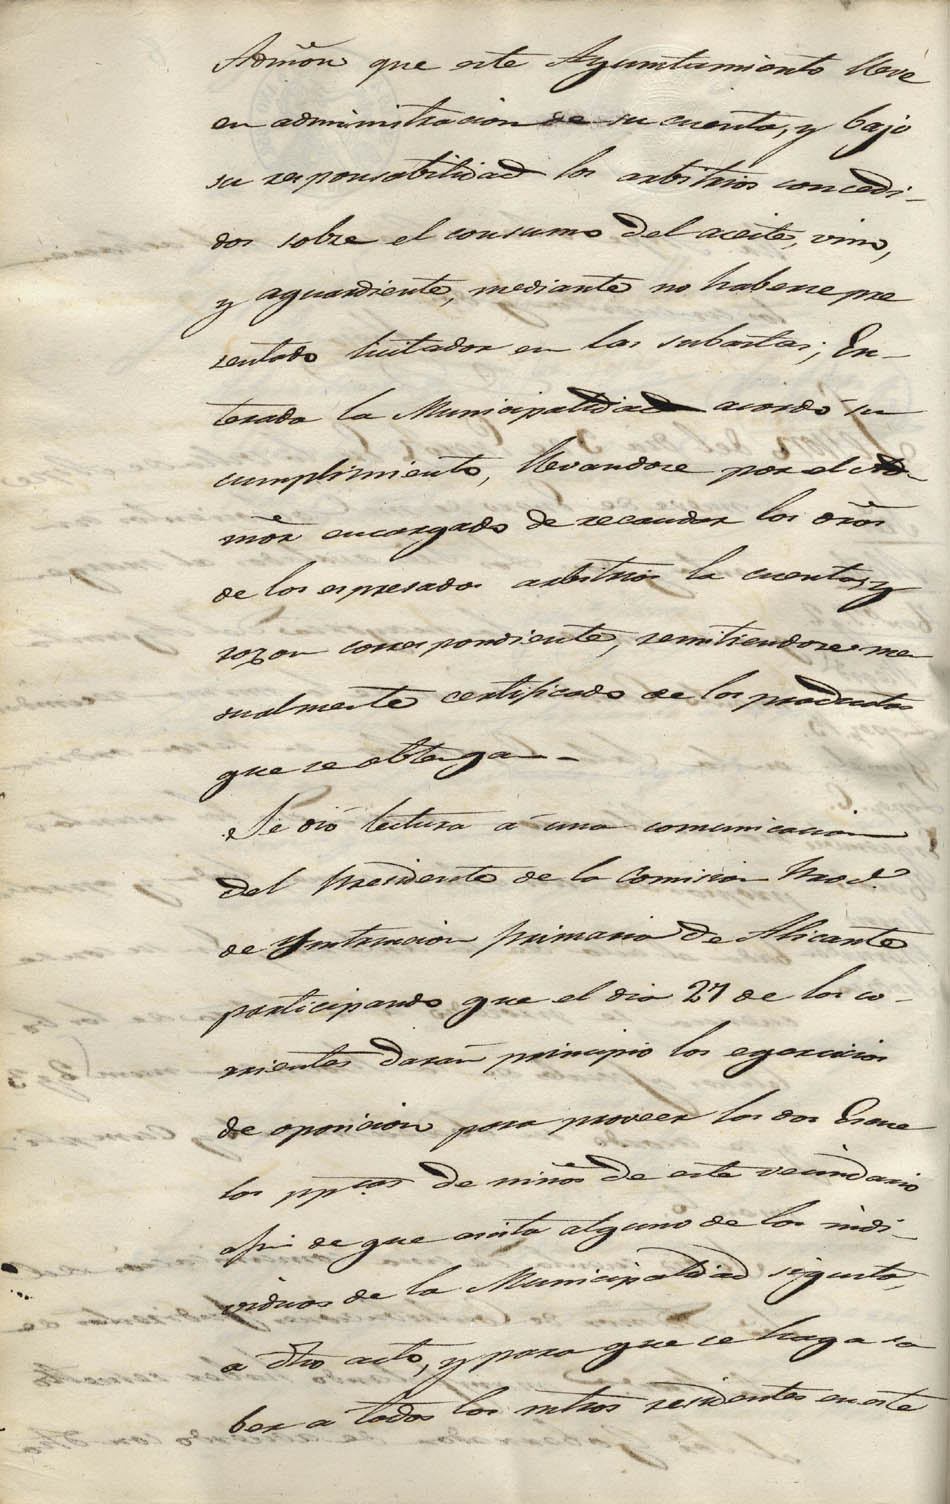 Admõn que este Ayuntamiento lleve
en administracion de su cuenta, y bajo
su responsabilidad los arbitrios concedi-
dos sobre el consumo del aceite, vino,
y aguardiente, mediante no haberse pre
sentado licitador en las subastas; En-
terada la Municipalidad acordó su
cumplimiento, llevandose por el Ad-
mõr encargado de recaudar los dr̃os
de los espresados arbitrios la cuenta, y
razon correspondiente, remitiendose men
sualmente certificado de los productos
que se obtengan -
Se dió lectura á una comunicacion
del Presidente de la Comision Prov.l
de Yntruccion primaria de Alicante
participando que el dia 27 de los co-
rrientes darán principio los egercicios
de oposicion para proveer las dos Escue
las pp.cas de niños de este vecindario
afin de que asista alguno de los indi-
viduos de la Municipalidad si gusta,
a dho acto, y para que se haga sa
ber a todos los mtros residentes en este